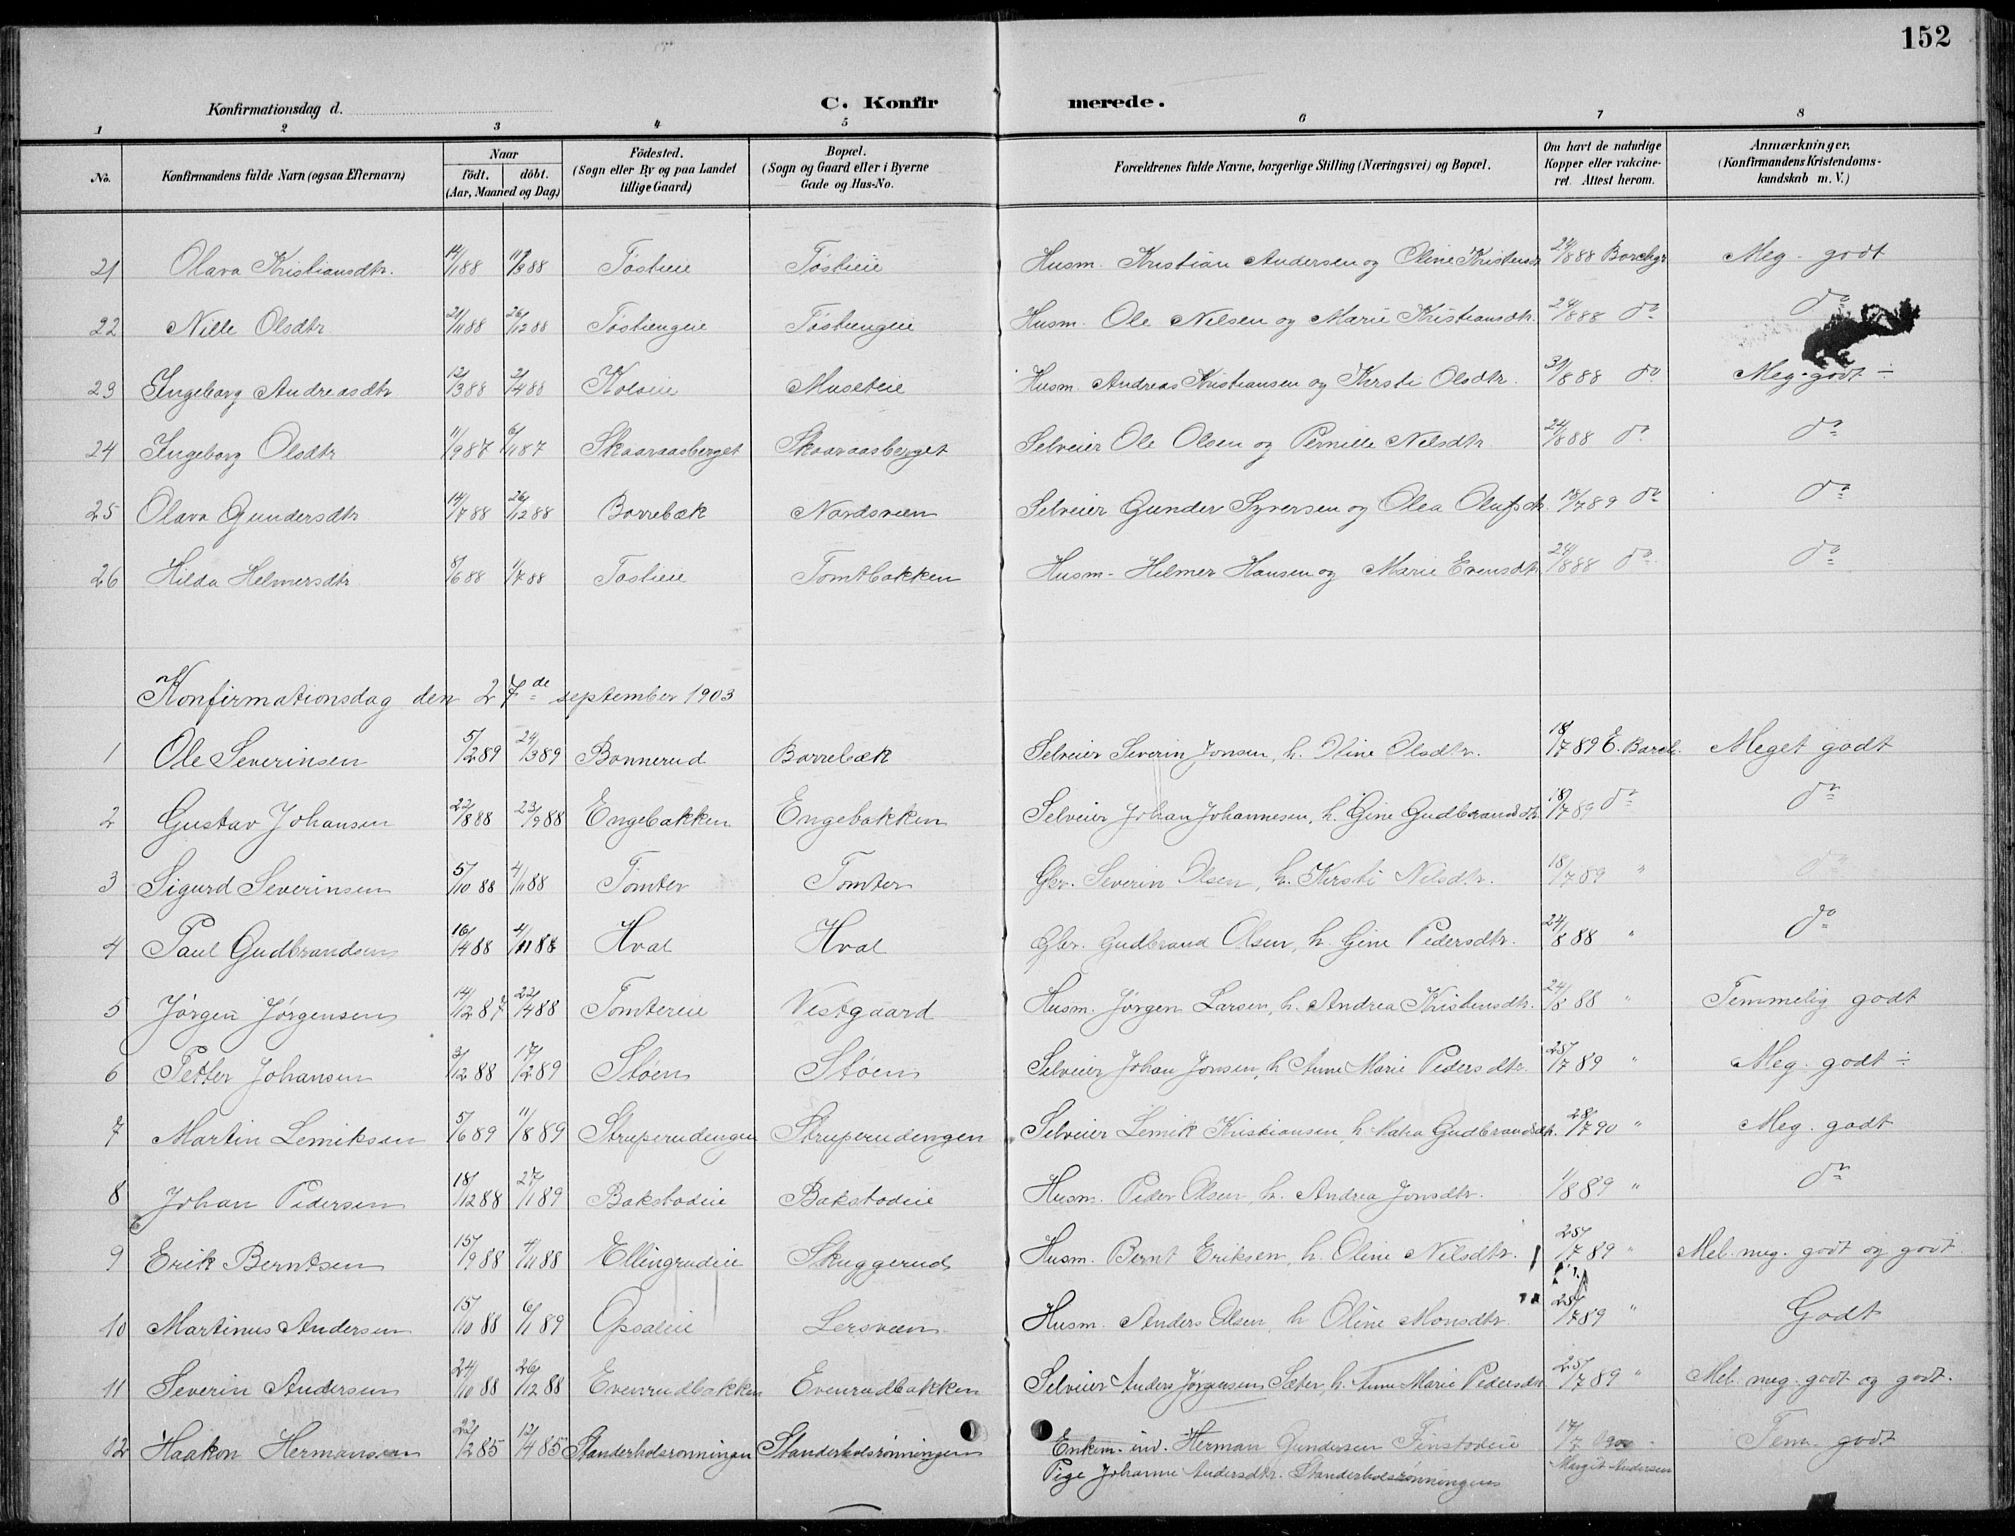 152
Konfirmationsdag d.
C. Konfir merede.
1 2 3 4 5 6 7 8
No.
Konfirmandens fulde Navn (ogsaa Efternavn)
Naar
født. døbt.
(Aar, Maaned og Dag)
Fødested.
(Sogn eller By og paa Landet
tillige Gaard)
Bopæl.
(Sogn og Gaard eller i Byerne
Gade og Hus-No.
Forældrenes fulde Navne, borgerlige Stilling (Næringsvei) og Bopæl.
Om havt de naturlige
Kopper eller vakcine-
ret. Attest herom.
Anmærkninger.
(Konfirmandens Kristendoms-
kundskab m. V.)
21 Olava Kristiansdtr. 14/1 88 11/3 88 Tøstieie Tøstieie Husm. Kristian Andersen og Oline Kristensdtr 24/8 88 Borchgr Meg. godt
22 Nille Olsdtr 21/11 88 26/12 88 Tøstiengeie Tøstiengeie Husm. Ole Nilsen og Marie Kristiansdtr. 24/8 88 do do
23 Ingeborg Andreasdtr 12/3 88 2/4 88 Kolveie Museteie Husm. Andreas Kristiansen og Kersti Olsdtr. 31/8 88 do Meg. godt ÷
24 Ingeborg Olsdtr 11/9 87 6/11 87 Skaaraasberget Skaaraasberget Selveier Ole Olsen og Pernille Nilsdtr 24/8 88 do do
25 Olava Gundersdtr 14/7 88 26/12 88 Borrebæk Nordsveen Selveier Gunder Syversen og Olea Olufsdtr. 18/7 89 do do
26 Hilda Helmersdtr 8/6 88 1/7 88 Tostieie Tomtbakken Husm. Hilmer Hansen og Marie Evensdtr. 24/8 88 do do
Konfirmationsdag den 27de september 1903
1 Ole Severinsen 5/2 89 24/3 89 Bonnerud Borrebæk Selveier Severin Jonsen, h. Oline Olsdtr. 18/7 89 E. Borch. Meget godt
2 Gustav Johansen 22/8 88 23/9 88 Engebakken Engebakken Selveier Johan Johannesen, h. Gine Gudbrandsdtr. 18/7 89 do do
3 Sigurd Severinsen 5/10 88 4/11 88 Tomter Tomter Gbr. Severin Olsen, h. Kersti Nilsdtr. 18/7 89 " do
4 Paul Gudbrandsen 16/4 88 4/11 88 Hval Hval Gbr. Gudbrand Olsen, h. Gine Pedersdtr. 24/8 88 " do
5 Jørgen Jørgensen 14/12 87 22/4 88 Tomtereie Vestgaard Husm. Jørgen Larsen, h. Andrea Kristensdtr. 24/8 88 " Temmelig godt
6 Petter Johansen 3/12 88 17/2 89 Støen Støen Selveier Johan Jonsen, h Anne Marie Pedersdtr. 25/7 89 " Meg. godt ÷
7 Martin Lemiksen 5/6 89 11/8 89 Struperudengen Struperudengen Selveier Lemik Kristiansen, h. Gudbrandsdtr. 28/7 90 " Meg. godt
8 Johan Pedersen 18/12 88 27/1 89 Bakstodeie Bakstodeie Husm. Peder Olsen, h. Andrea Jonsdtr. 1/8 89 " do
9 Erik Berntsen 15/9 88 4/11 88 Ellingrudeie Skuggerud Husm. Bernt Eriksen, h. Oline Nilsdtr. 25/7 89 " Mel. meg. godt og godt
10 Martinus Andersen 15/10 88 6/1 89 Opsaleie Lersveen Husm. Anders Olsen, h Oline Monsdtr. 25/7 89 " Godt
11 Severin Andersen 24/10 88 26/12 88 Evenrudbakken Evenrudbakken Selveier Anders Jørgensen Sæter, h. Anne Marie Pedersdtr 25/7 89 " Mel. meg. godt og godt.
12 Haakon Hermansen 22/2 85 12/4 85 Standerholsrønningen Standerholsrønningen Enkem. inv. Herman Gundersen Finstodeie 17/7 Tem. godt
Pige Johanne Andersdtr. Standerholsrønningen Margit Andersen